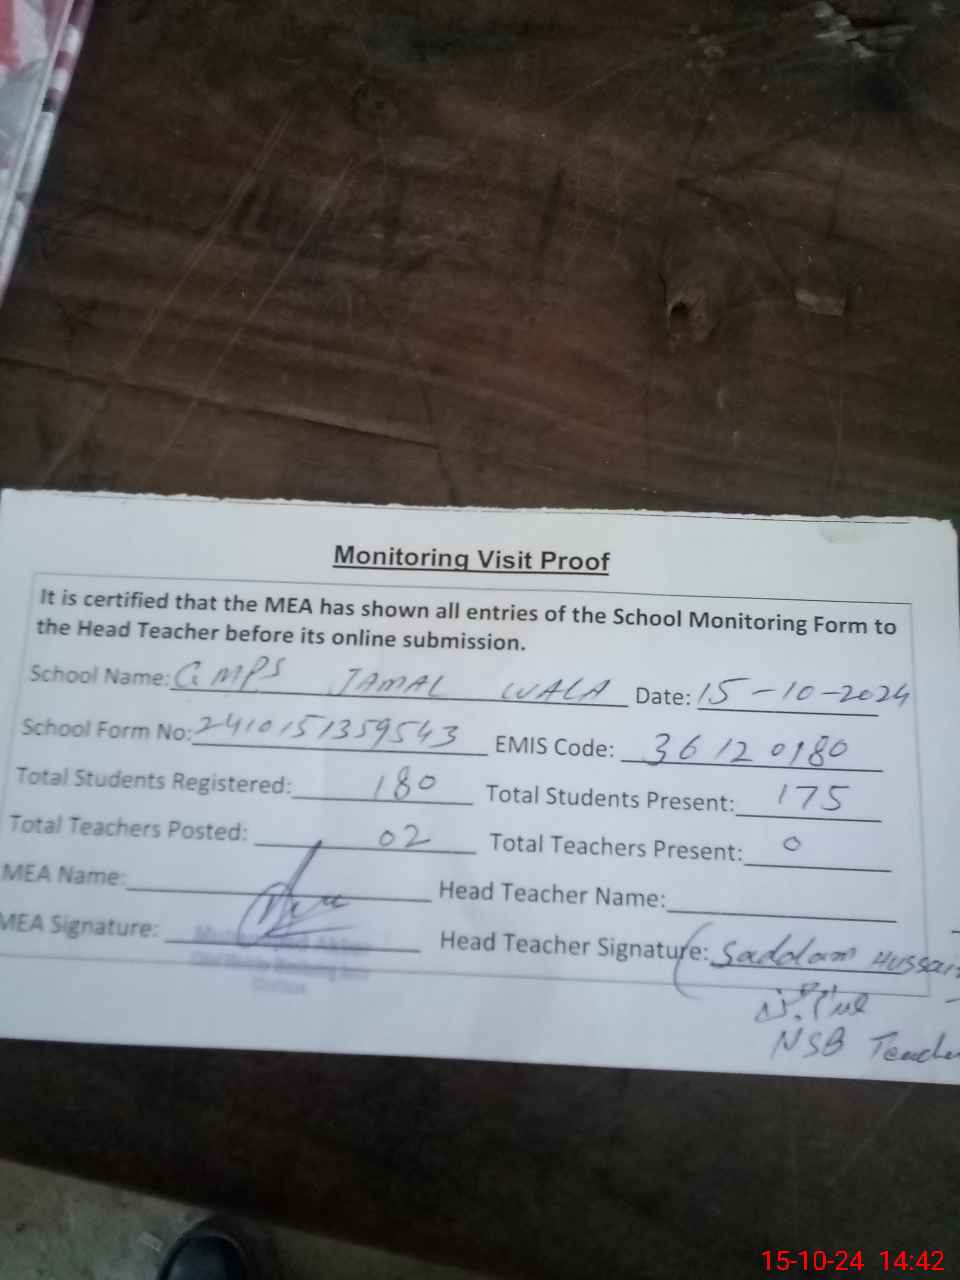 Monitoring Visit Proof
It is certified that the MEA has shown all entries of the School Monitoring Form to
the Head Teacher before its online submission.
School Name: GMPS JAMAL WALA Date: 15-10-2024
School Form No: 2410151359543 EMIS Code: 36120180
Total Students Registered: 180 Total Students Present: 175
Total Teachers Posted: 02 Total Teachers Present: 0
MEA Name: Head Teacher Name:
MEA Signature: Head Teacher Signature: Saddam Hussain
NSB Teacher
15-10-24 14:42